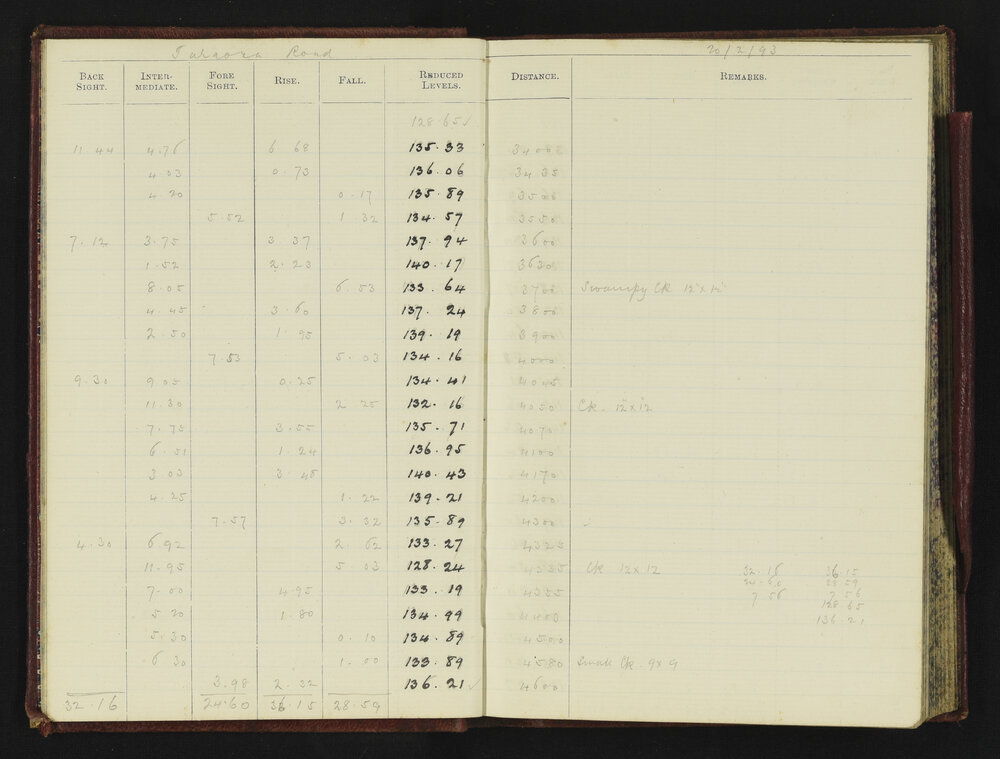 Road 20/2/93
BACK SIGHT. INTER-MEDIATE. FORE SIGHT. RISE. FALL. REDUCED LEVELS. DISTANCE. REMARKS.
128.65 ✓
11.44 4.76 6.68 135.33 3400
4.03 0.73 136.06 3435
4.20 0.17 135.89 3500
5.52 1.32 134.57 3550
7.12 3.75 3.37 137.94 3600
1.52 2.23 140.17 3630
8.05 6.53 133.64 3700 Swampy Ck 12 x 12
4.45 3.60 137.24 3800
2.50 1.95 139.19 3900
7.53 5.03 134.16 4000
9.30 9.05 0.25 134.41 4045
11.30 2.25 132.16 4050 Ck. 12 x 12
7.75 3.55 135.71 4070
6.51 1.24 136.95 4100
3.03 3.48 140.43 4170
4.25 1.22 139.21 4200
7.57 3.32 135.89 4300 ✓
4.30 6.92 2.62 133.27 4325
11.95 5.03 128.24 4335 Ck 12 x 12 32.16 36.15
24.60 28.59
7.00 4.95 133.19 4355 7.56 7.56
128.65
5.20 1.80 134.99 4400 136.21
5.30 0.10 134.89 4500
6.30 1.00 133.89 4580 Small Ck. 9 x 9
3.98 2.32 136.21 ✓ 4600
32.16 24.60 36.15 28.59